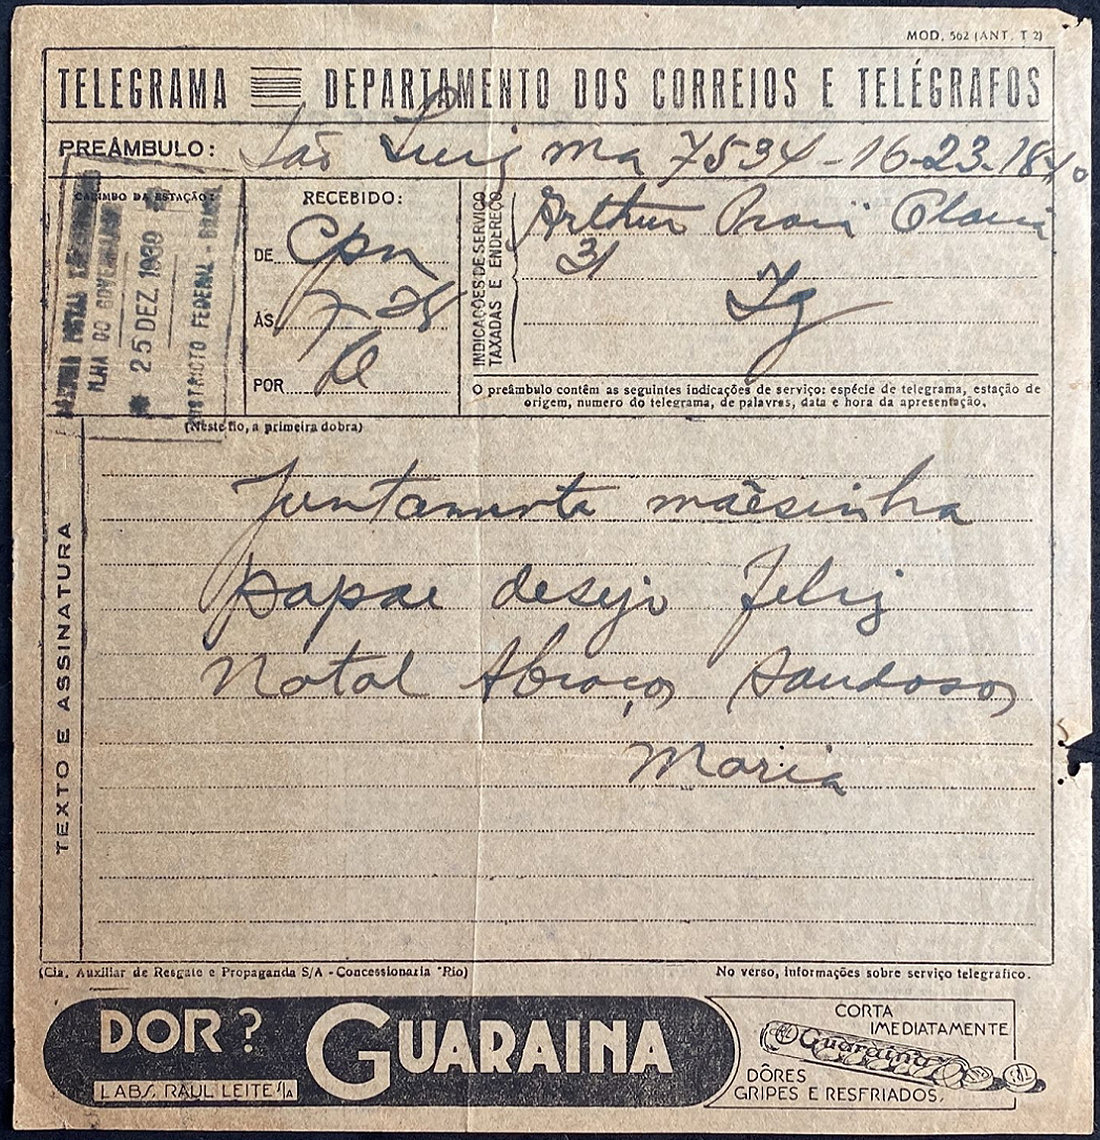 MOD. 562 (ANT. T 2)
TELEGRAMA DEPARTAMENTO DOS CORREIOS E TELÉGRAFOS
PREÂMBULO: São Luiz Ma 7534-16-23-1840
CARIMBO DA ESTAÇÃO:
ILHA DO GOVERNADOR
25 DEZ. 1939
DISTRICTO FEDERAL - BRASIL
RECEBIDO:
DE
ÀS
POR
INDICAÇÕES DE SERVIÇO
TAXADAS E ENDEREÇO
Arthur
31
O preâmbulo contêm as seguintes indicações de serviço: espécie de telegrama, estação de
origem, numero do telegrama, de palavras, data e hora da apresentação.
(Neste fio, a primeira dobra)
TEXTO E ASSINATURA
Juntamente mãesinha
papae desejo feliz
Natal Abraços saudosos
Maria
(Cia. Auxiliar de Resgate e Propaganda S/A - Concessionaria "Rio)
No verso, informações sobre serviço telegráfico.
DOR? GUARAINA
LABS. RAUL LEITE S/A
CORTA
IMEDIATAMENTE
Guaraina
DÔRES
GRIPES E RESFRIADOS.